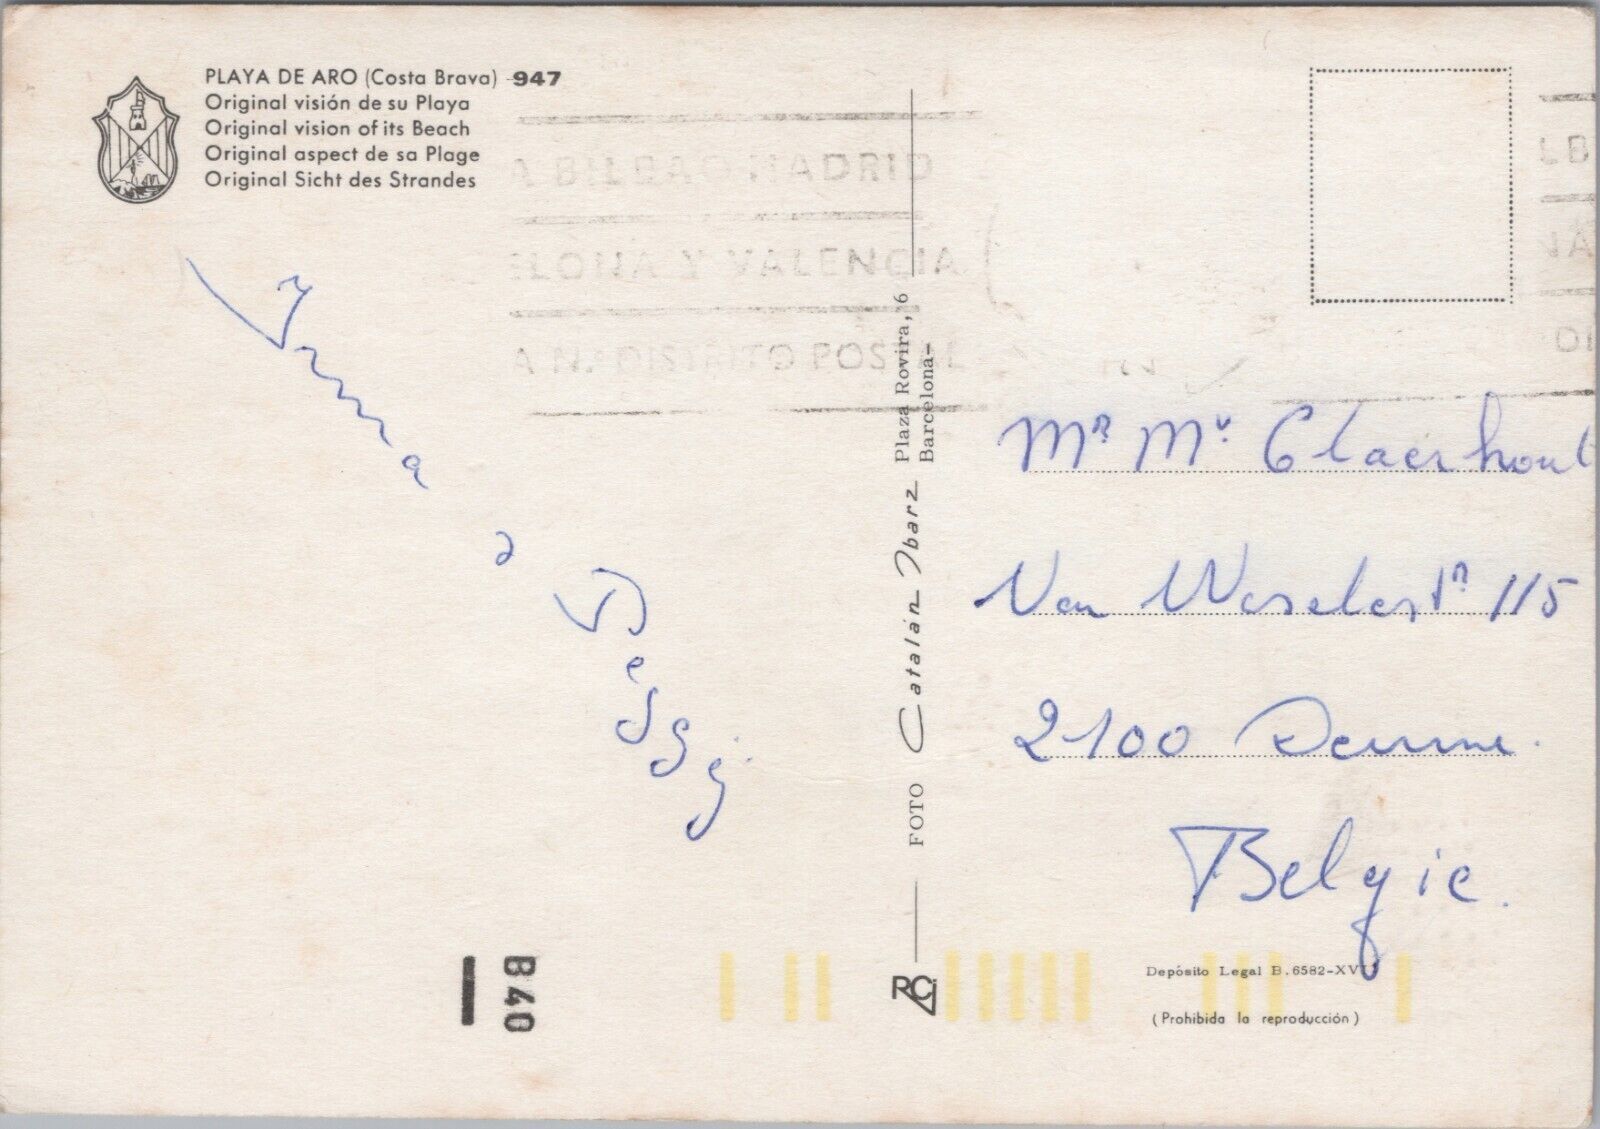 PLAYA DE ARO (Costa Brava) - 947
Original visión de su Playa
Original vision of its Beach
Original aspect de sa Plage
Original Sicht des Strandes
A BILBAO MADRID
ELONA Y VALENCIA
A N.º DISTRITO POSTAL
LB
NA
Irma
Mr Mv Claerhout
115
2100 Deurne.
Belgie.
FOTO Catalán Ibarz Plaza Rovira, 6
Barcelona-
B40
RCi
Depósito Legal B. 6582-XVII
(Prohibida la reproducción)